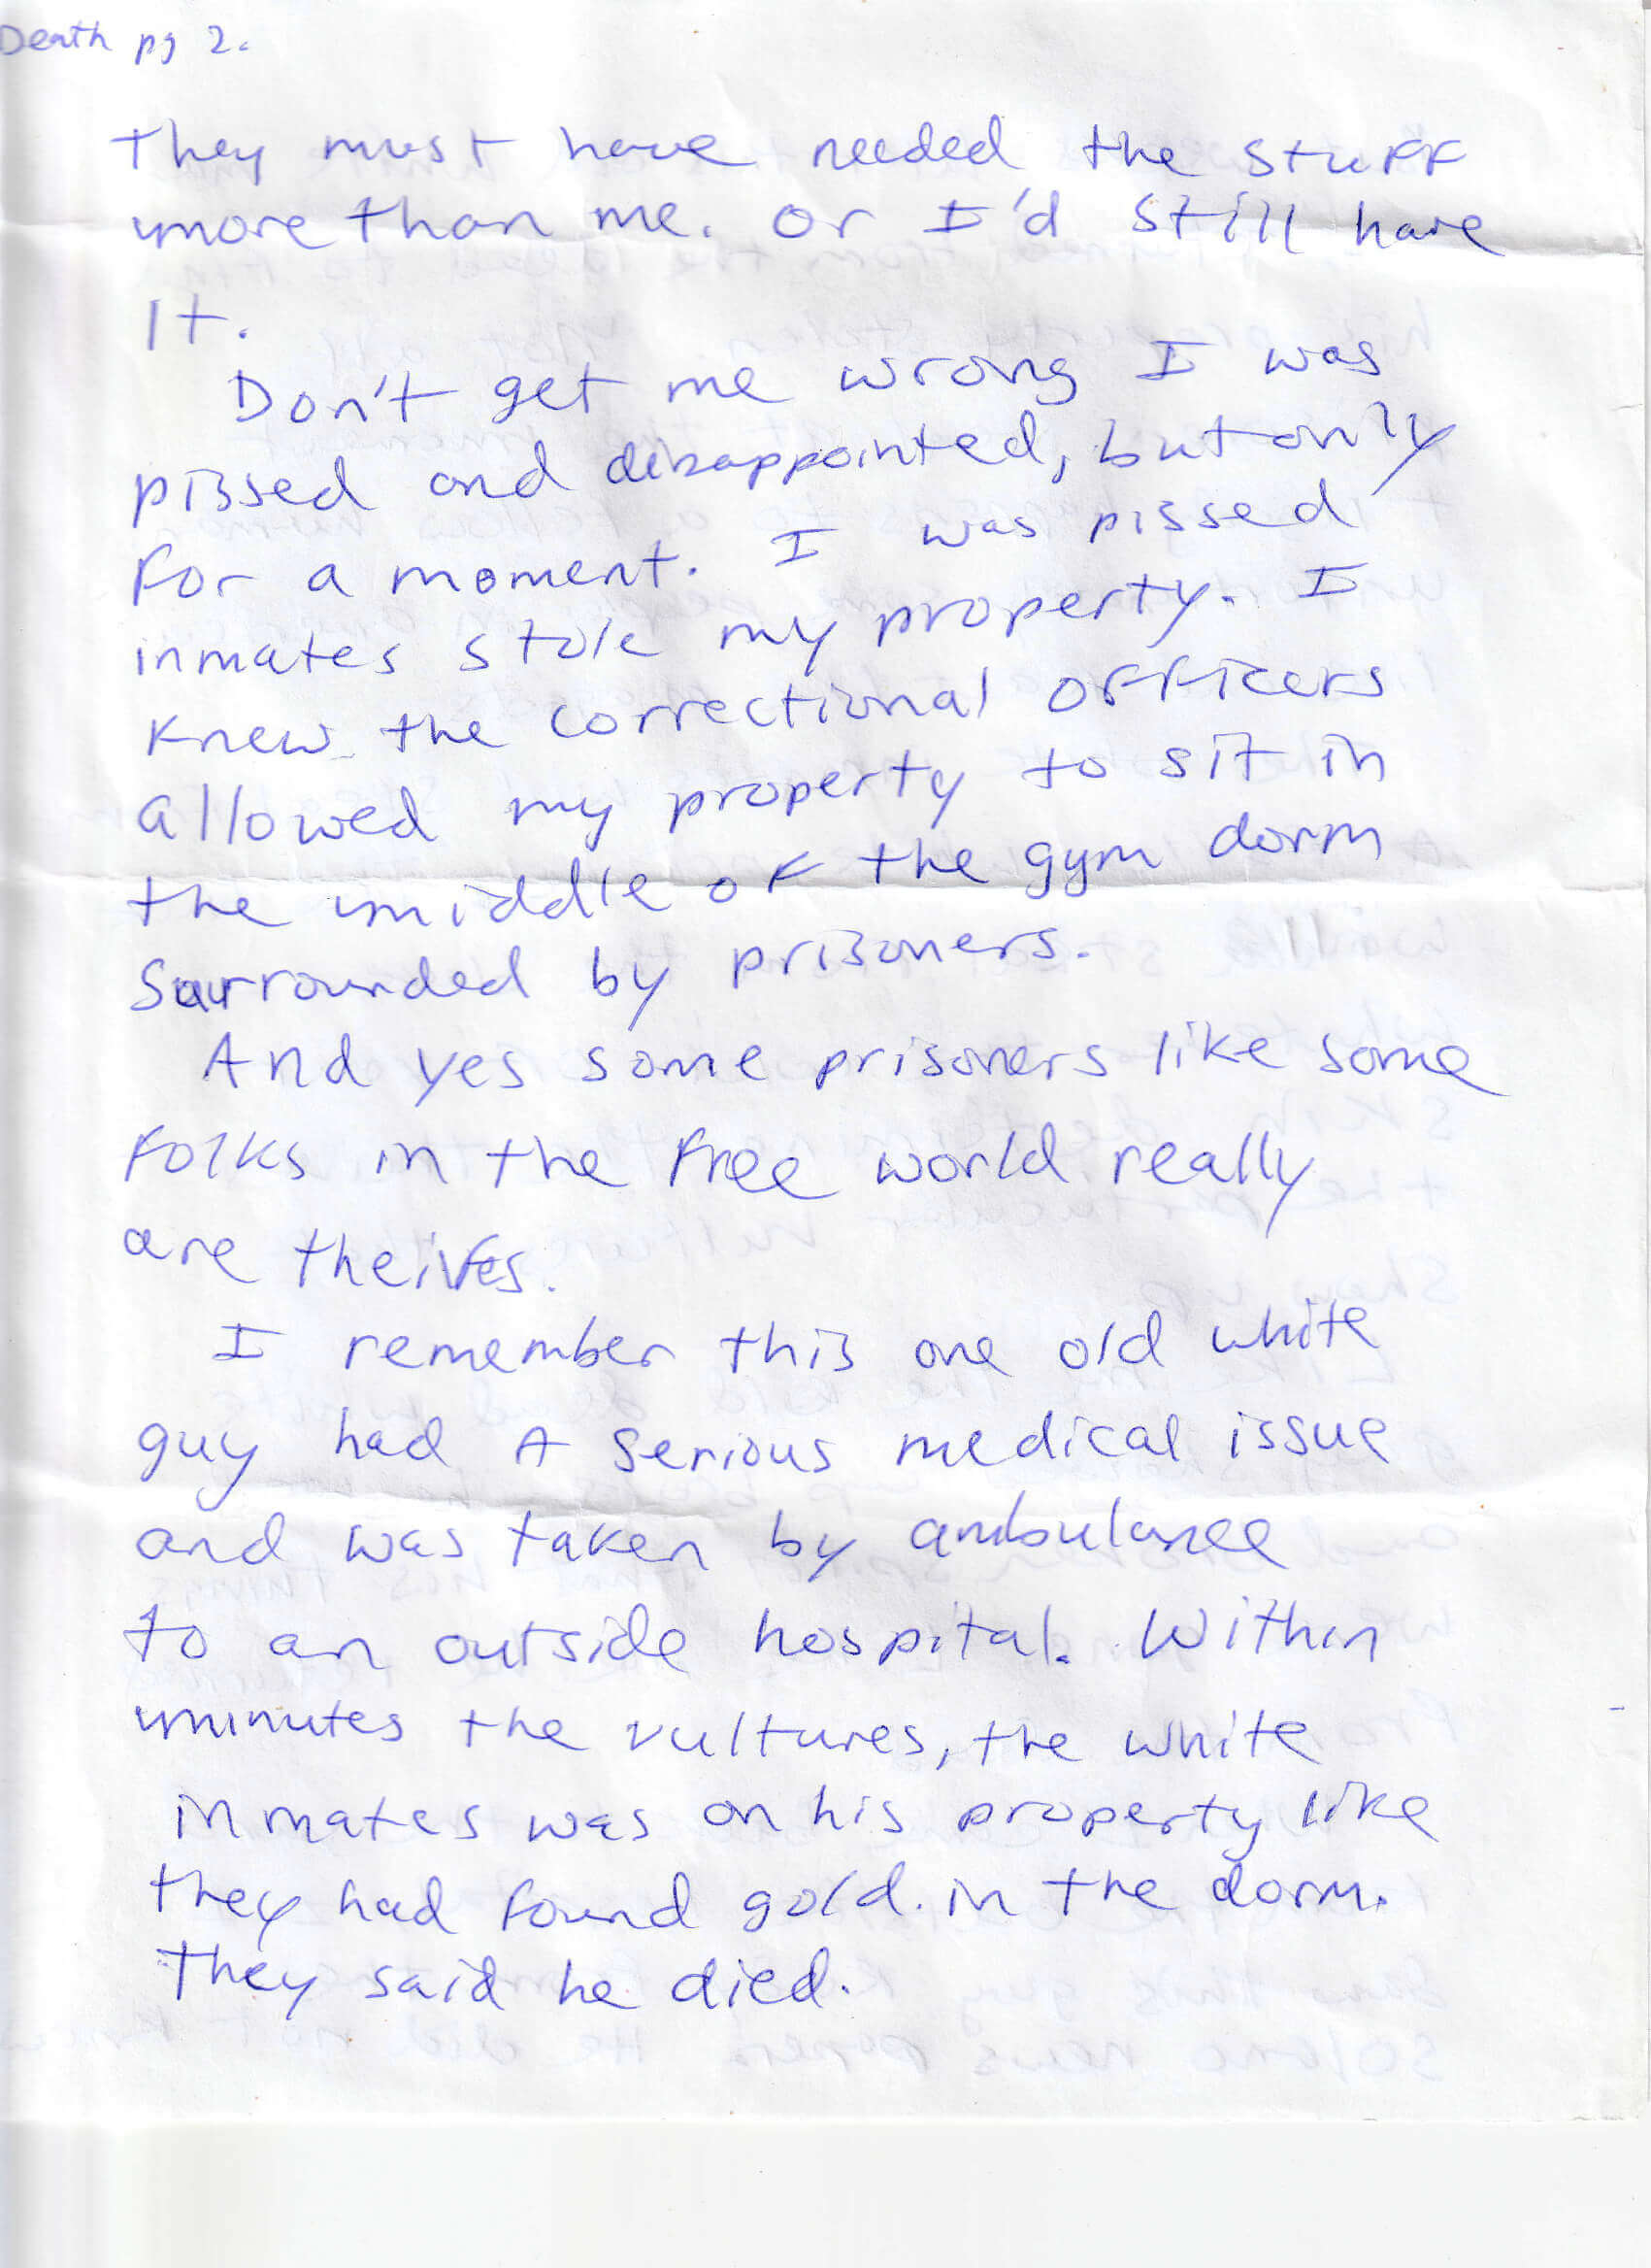 Death pg 2.
They must have needed the stuff
more than me. Or I'd still have
it.
Don't get me wrong I was
pissed and disappointed, but only
for a moment. I was pissed
inmates stole my property. I
knew the correctional officers
allowed my property to sit in
the middle of the gym dorm
surrounded by prisoners.
And yes some prisoners like some
folks in the free world really
are theives.
I remember this one old white
guy had A serious medical issue
and was taken by ambulance
to an outside hospital. Within
minutes the vultures, the white
inmates was on his property like
they had found gold. in the dorm.
They said he died.